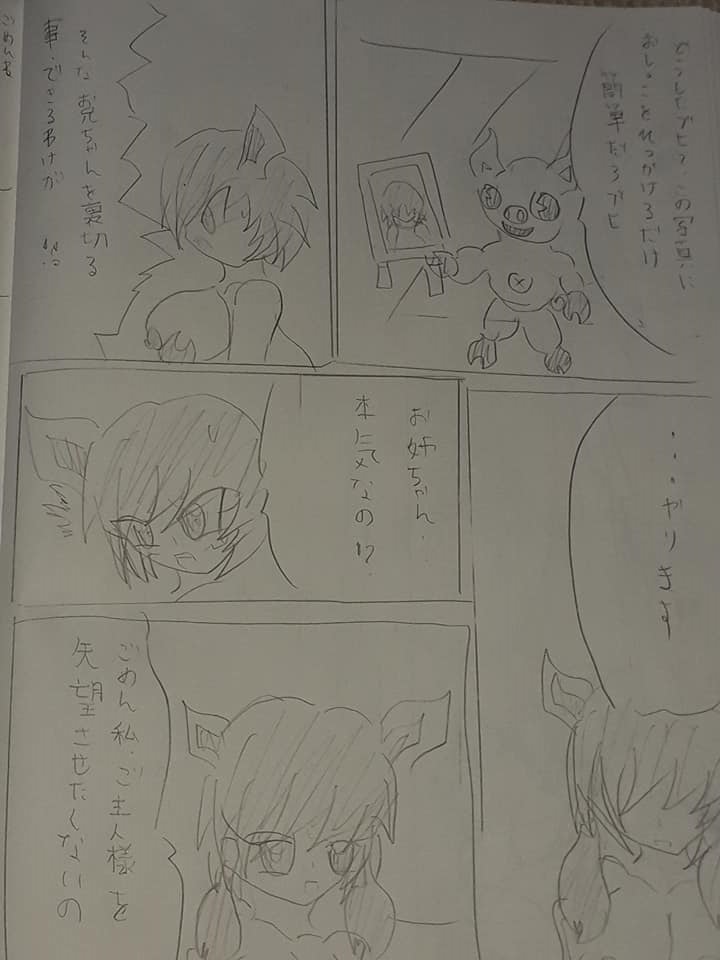 どうしたブヒ?この写真に
おしっこをひっかけるだけ
簡単だろブヒ
そんなお兄ちゃんを裏切る
事・できるわけが!!?
・・・やります
お姉ちゃん・
本気なの!?
ごめん私・ご主人様を
失望させたくないの